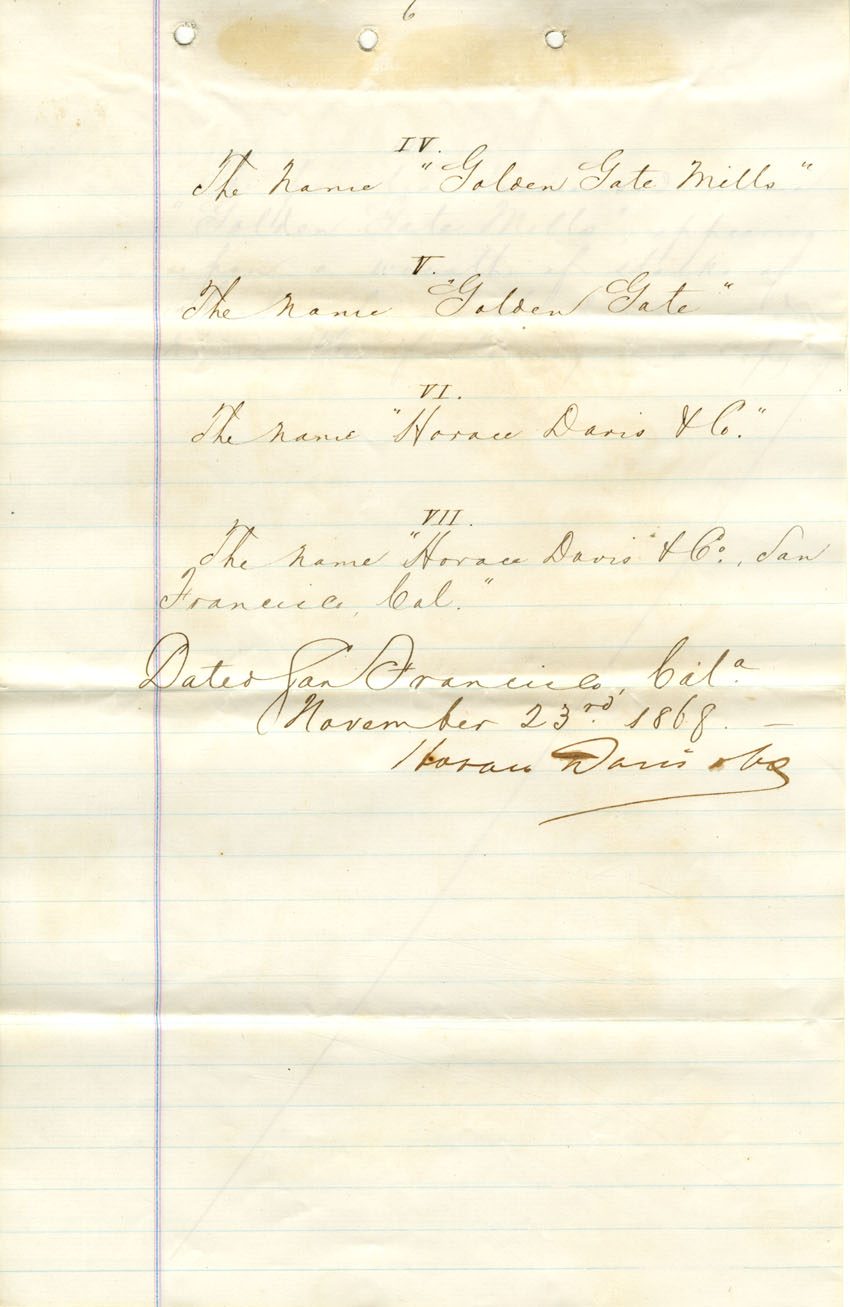 6
IV.
The Name "Golden Gate Mills"
V.
The name "Golden Gate"
VI.
The name "Horace Davis & Co."
VII.
The name "Horace Davis & Co., San
Francisco, Cal."
Dated San Francisco, Cala
November 23rd. 1868. —
Horace Davis & Co